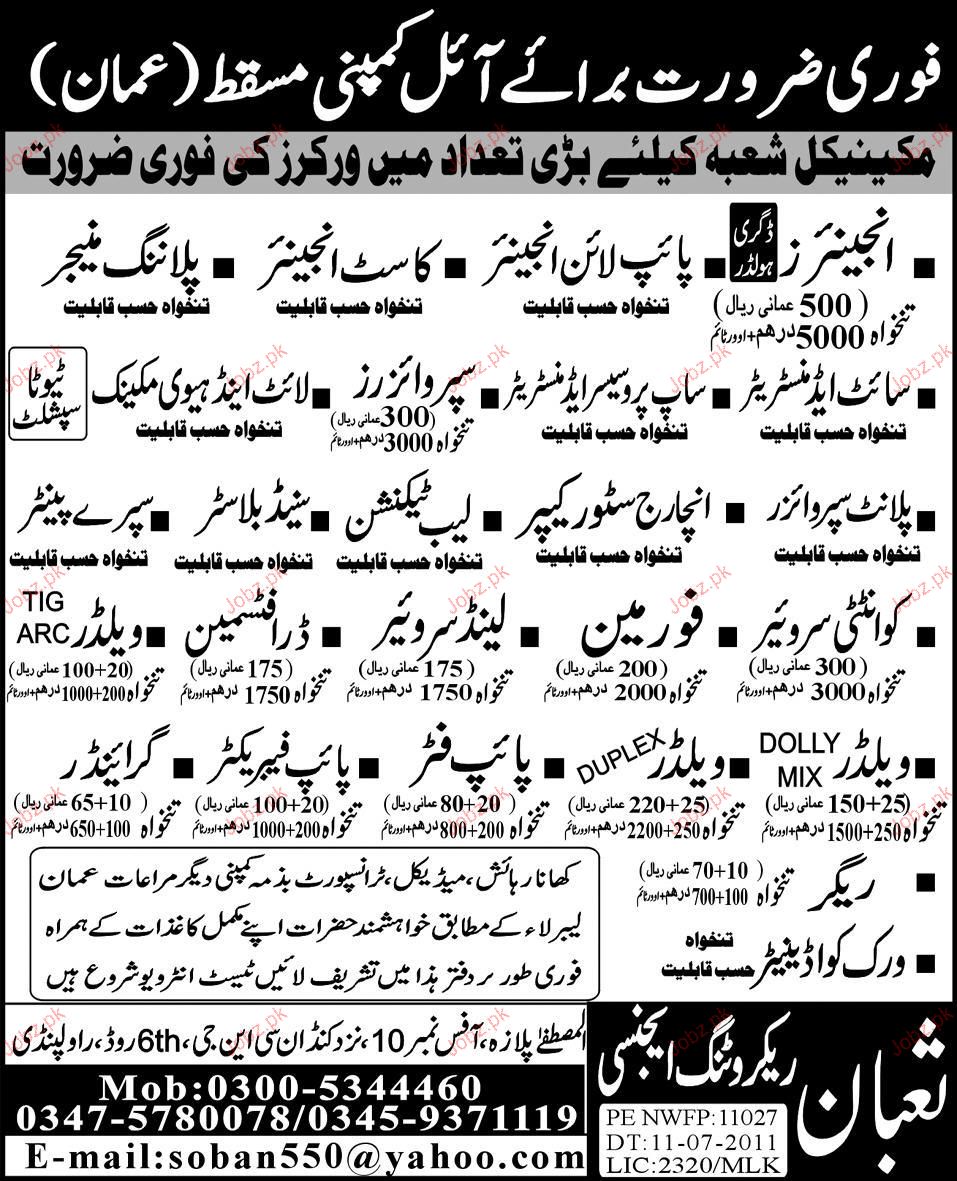 فوری ضرورت برائے آئل کمپنی مسقط (عمان)
مکینیکل شعبہ کیلئے بڑی تعداد میں ورکرز کی فوری ضرورت
■ انجینئرز ڈگری ہولڈر ■ پائپ لائن انجینئر ■ کاسٹ انجینئر ■ پلاننگ منیجر
تنخواہ (500 عمانی ریال) 5000 درھم+اوورٹائم تنخواہ حسب قابلیت تنخواہ حسب قابلیت تنخواہ حسب قابلیت
■ سائٹ ایڈمنسٹریٹر ■ ساپ پروسیسر ایڈمنسٹریٹر ■ سپروائزرز ■ لائٹ اینڈ ہیوی مکینک ٹیوٹا سپشلسٹ
تنخواہ حسب قابلیت تنخواہ حسب قابلیت تنخواہ (300 عمانی ریال) 3000 درھم+اوورٹائم تنخواہ حسب قابلیت
■ پلانٹ سپروائزر ■ انچارج سٹور کیپر ■ لیب ٹیکنشن ■ سینڈ بلاسٹر ■ سپرے پینٹر
تنخواہ حسب قابلیت تنخواہ حسب قابلیت تنخواہ حسب قابلیت تنخواہ حسب قابلیت تنخواہ حسب قابلیت
■ کوانٹٹی سروئیر ■ فورمین ■ لینڈ سروئیر ■ ڈرافٹسمین ■ ویلڈر TIG ARC
تنخواہ (300 عمانی ریال) 3000 درھم+اوورٹائم تنخواہ (200 عمانی ریال) 2000 درھم+اوورٹائم تنخواہ (175 عمانی ریال) 1750 درھم+اوورٹائم تنخواہ (175 عمانی ریال) 1750 درھم+اوورٹائم تنخواہ (100+20 عمانی ریال) 1000+200 درھم+اوورٹائم
■ ویلڈر DOLLY MIX ■ ویلڈر DUPLEX ■ پائپ فٹر ■ پائپ فیبریکٹر ■ گرائینڈر
تنخواہ (150+25 عمانی ریال) 1500+250 درھم+اوورٹائم تنخواہ (220+25 عمانی ریال) 2200+250 درھم+اوورٹائم تنخواہ (80+20 عمانی ریال) 800+200 درھم+اوورٹائم تنخواہ (100+20 عمانی ریال) 1000+200 درھم+اوورٹائم تنخواہ (65+10 عمانی ریال) 650+100 درھم+اوورٹائم
■ ریگر تنخواہ (70+10 عمانی ریال) 700+100 درھم+اوورٹائم
■ ورک کواڈینیٹر تنخواہ حسب قابلیت
کھانا رہائش، میڈیکل، ٹرانسپورٹ بذمہ کمپنی دیگر مراعات عمان
لیبر لاء کے مطابق خواہشمند حضرات اپنے مکمل کاغذات کے ہمراہ
فوری طور پر دفتر ہذا میں تشریف لائیں ٹیسٹ انٹرویو شروع ہیں
ثعبان ریکروٹنگ ایجنسی
PE NWFP:11027
DT:11-07-2011
LIC:2320/MLK
المصطفیٰ پلازہ، آفس نمبر 10، نزد کنڈان سی این جی، 6th روڈ، راولپنڈی
Mob:0300-5344460
0347-5780078/0345-9371119
E-mail:soban550@yahoo.com
Jobz.pk